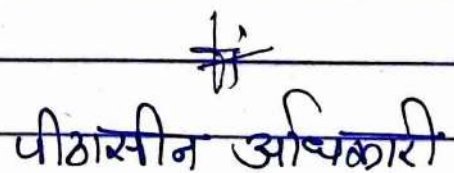 पीठासीन अधिकारी